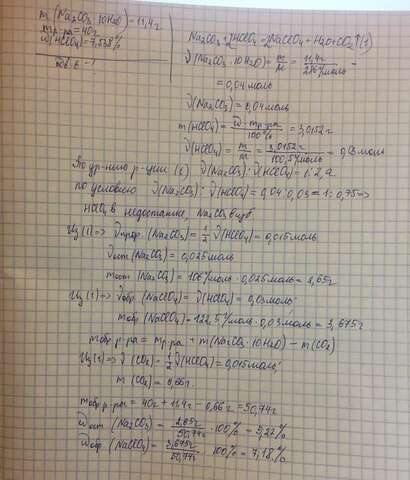 m(Na2CO3·10H2O)=11,4г
mр.ра=40г
ω(HClO4)=7,538%
ωв.в - ?
Na2CO3+2HClO4=2NaClO4+H2O+CO2↑(1)
ν(Na2CO3·10H2O)=m/M=11,4г/286г/моль=
=0,04моль
ν(Na2CO3)=0,04моль
m(HClO4)=ω·mр.ра/100%=3,0152г
ν(HClO4)=m/M=3,0152г/100,5г/моль=0,03моль
По ур-нию р-ции (1) ν(Na2CO3):ν(HClO4)=1:2, а
по условию ν(Na2CO3):ν(HClO4)=0,04:0,03=1:0,75=>
HClO4 в недостатке, Na2CO3 в изб.
Из(1)=>νпрор.(Na2CO3)=1/2ν(HClO4)=0,015моль
νост(Na2CO3)=0,025моль
mост(Na2CO3)=106г/моль·0,025моль=2,65г
Из(1)=>νобр.(NaClO4)=ν(HClO4)=0,03моль;
mобр(NaClO4)=122,5г/моль·0,03моль=3,675г
mобр.р-ра=mр.ра+m(Na2CO3·10H2O)-m(CO2)
Из(1)=>ν(CO2)=1/2ν(HClO4)=0,015моль;
m(CO2)=0,66г.
mобр.р-ра=40г+11,4г-0,66г=50,74г
ωост(Na2CO3)=2,65г/50,74г·100%=5,22%
ωобр(NaClO4)=3,675г/50,74г·100%=7,18%